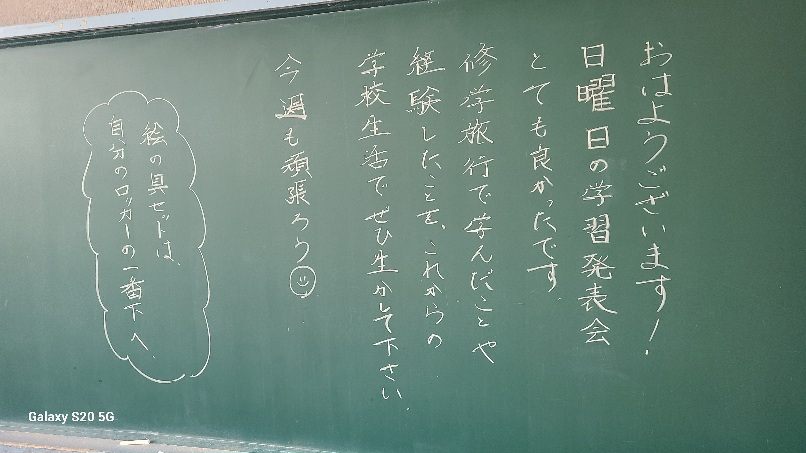 おはようございます！
日曜日の学習発表会
とても良かったです。
修学旅行で学んだことや
経験したことを、これからの
学校生活でぜひ生かして下さい。
今週も頑張ろう
絵の具セットは、
自分のロッカーの一番下へ。
Galaxy S20 5G